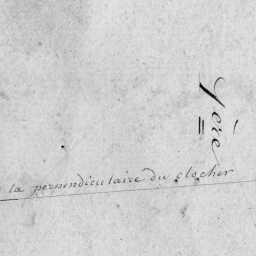 Yère
la perpendiculaire du clocher